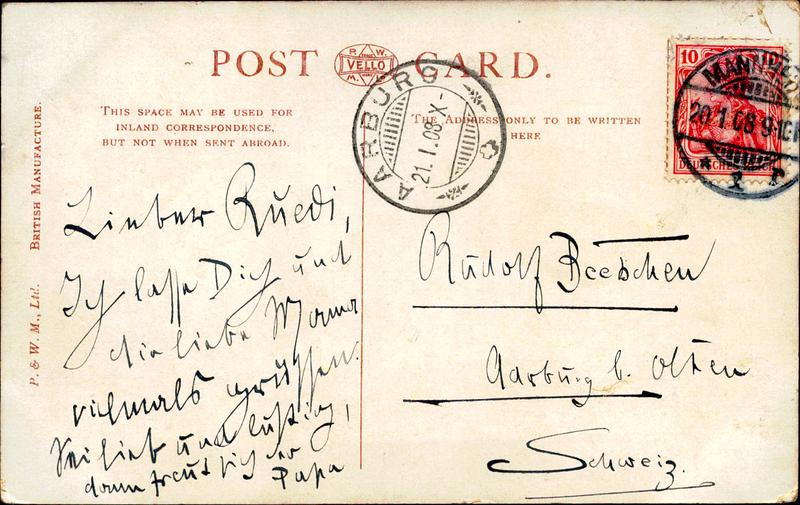 POST CARD.
P. W.
VELLO
M. L.
THIS SPACE MAY BE USED FOR
INLAND CORRESPONDENCE,
BUT NOT WHEN SENT ABROAD.
THE ADDRESS ONLY TO BE WRITTEN
HERE
P. & W. M., Ltd. BRITISH MANUFACTURE.
AARBURG
21.I.08-X-
10
DEUTSCHES REICH
MANNHEIM
20.1.08 9-10
* 2
Lieber Ruedi,
Ich lasse Dich und
die liebe Mama
vilmals grüssen.
Sei lieb und lustig,
dann freut sich der
Papa
Rudolf
Aarburg b. Olten
Schweiz.